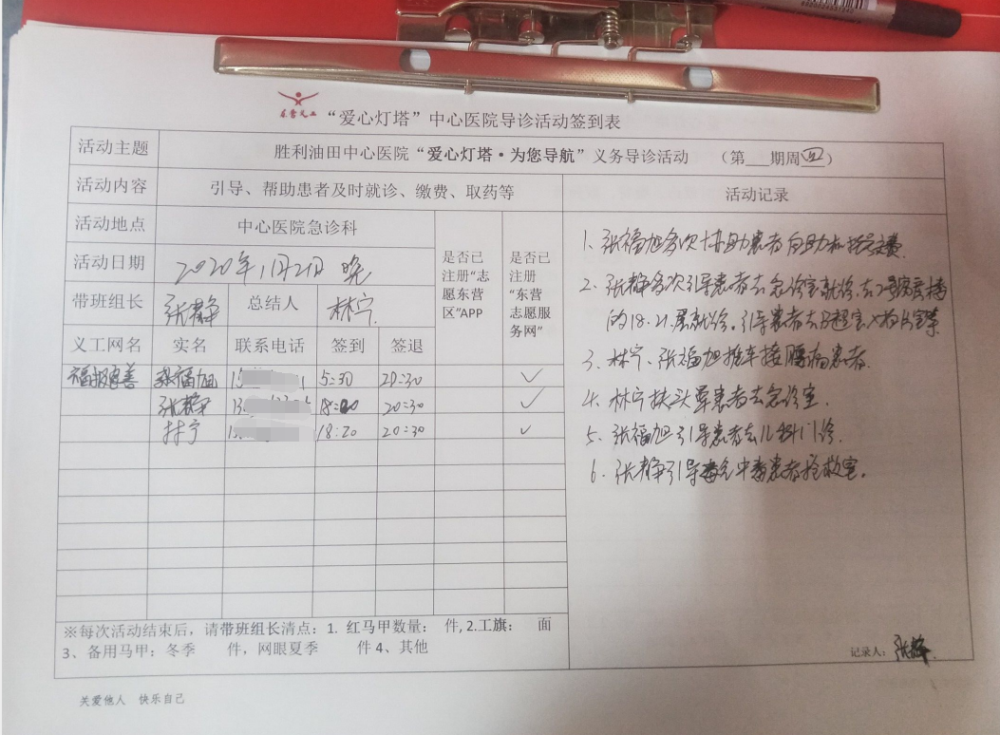 东营义工 “爱心灯塔”中心医院导诊活动签到表
活动主题 胜利油田中心医院“爱心灯塔·为您导航”义务导诊活动 （第___期周四）
活动内容 引导、帮助患者及时就诊、缴费、取药等 活动记录
活动地点 中心医院急诊科 是否已注册“志愿东营区”APP 是否已注册“东营志愿服务网”
活动日期 2020年1月2日 晚
带班组长 张静 总结人 林宁
义工网名 实名 联系电话 签到 签退
张福旭 5:30 20:30 ✓
张静 20:30 ✓
林宁 18:20 20:30 ✓
1、张福旭多次协助患者自助机挂号交费.
2、张静多次引导患者去急诊室就诊.去2号
的18.21层就诊.引导患者去B超室
3、林宁、张福旭推车接腰痛患者.
4、林宁扶头晕患者去急诊室.
5、张福旭引导患者去儿科门诊.
6、张静引导中毒患者抢救室.
※每次活动结束后，请带班组长清点：1. 红马甲数量： 件, 2.工旗： 面
3、备用马甲：冬季 件，网眼夏季 件 4、其他
记录人：张静
关爱他人 快乐自己